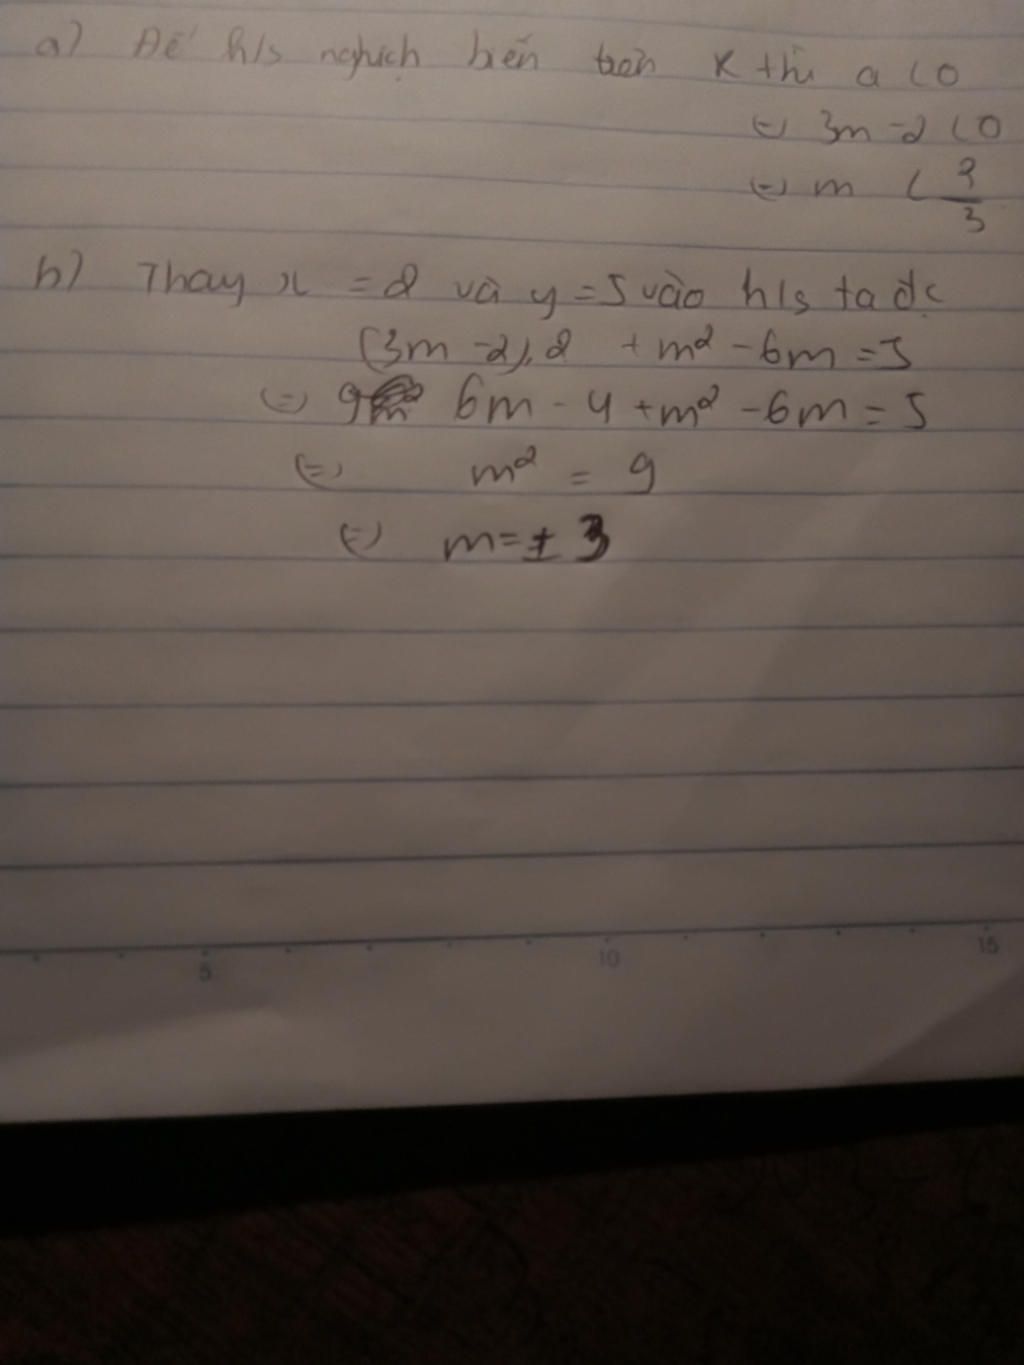 a) Để h/s nghịch biến trên R thì a < 0
⇔ 3m - 2 < 0
⇔ m < 2/3
b) Thay x = 2 và y = 5 vào h/s ta đc
(3m - 2).2 + m² - 6m = 5
⇔ 6m - 4 + m² - 6m = 5
⇔ m² = 9
⇔ m = ± 3
5 10 15